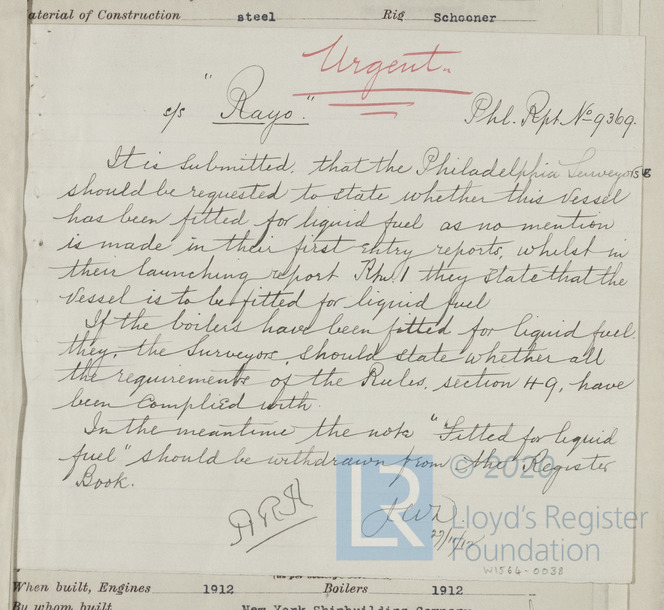 aterial of Construction steel Rig Schooner
Urgent.
s/s "Rayo." Phl. Rpt. No 9369.
It is submitted, that the Philadelphia Surveyors
should be requested to state whether this Vessel
has been fitted for liquid fuel as no mention
is made in their first entry reports, whilst in
their launching report Rpt. 1 they state that the
Vessel is to be fitted for liquid fuel
If the boilers have been fitted for liquid fuel.
they, the Surveyors, should state whether all
the requirements of the Rules, section 49, have
been complied with.
In the meantime the note "Fitted for liquid
fuel" should be withdrawn from the Register
Book.
© 2020
LR
Lloyd's Register
Foundation
W1564-0038
When built, Engines 1912 Boilers 1912
By whom built New York Shipbuilding Company